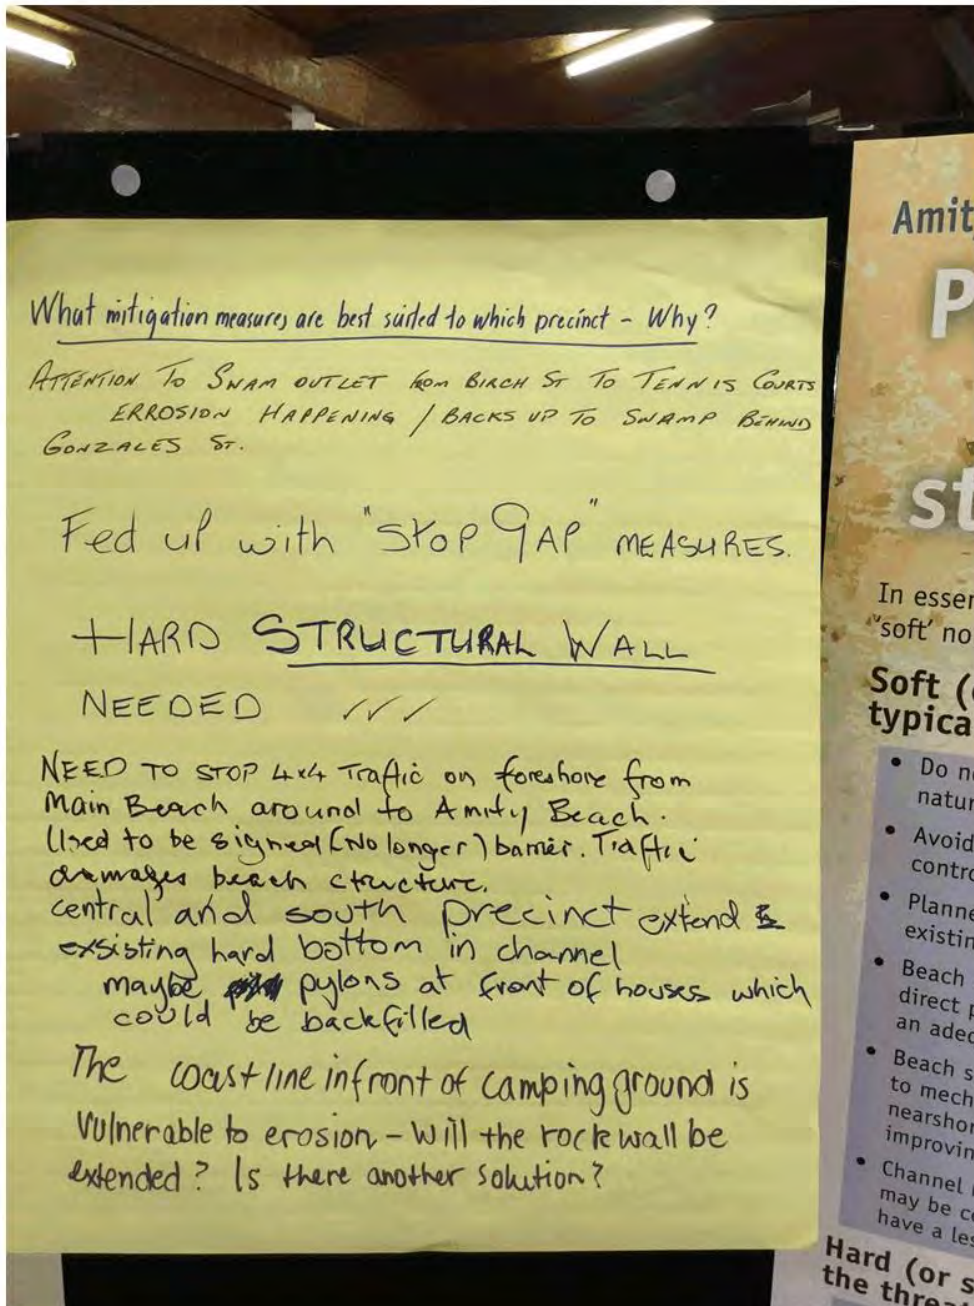 What mitigation measures are best suited to which precinct - Why?
ATTENTION TO SWAM OUTLET from BIRCH ST TO TENNIS COURTS
ERROSION HAPPENING / BACKS UP TO SWAMP BEHIND
GONZALES ST.
Fed up with "STOP GAP" MEASURES.
HARD STRUCTURAL WALL
NEEDED ✓✓✓
NEED TO STOP 4x4 Traffic on foreshore from
Main Beach around to Amity Beach.
Used to be signed (No longer) barrier. Traffic
damages beach structure.
central and south precinct extend
exsisting hard bottom in channel
maybe pylons at front of houses which
could be backfilled
The coastline infront of camping ground is
vulnerable to erosion - Will the rock wall be
extended? Is there another solution?
Amit
P
st
In essen
'soft' no
Soft (
typica
• Do n
natur
• Avoid
contro
• Planne
existin
• Beach
direct p
an adec
• Beach s
to mech
nearshor
improvin
• Channel
may be c
have a les
Hard (or s
the threat